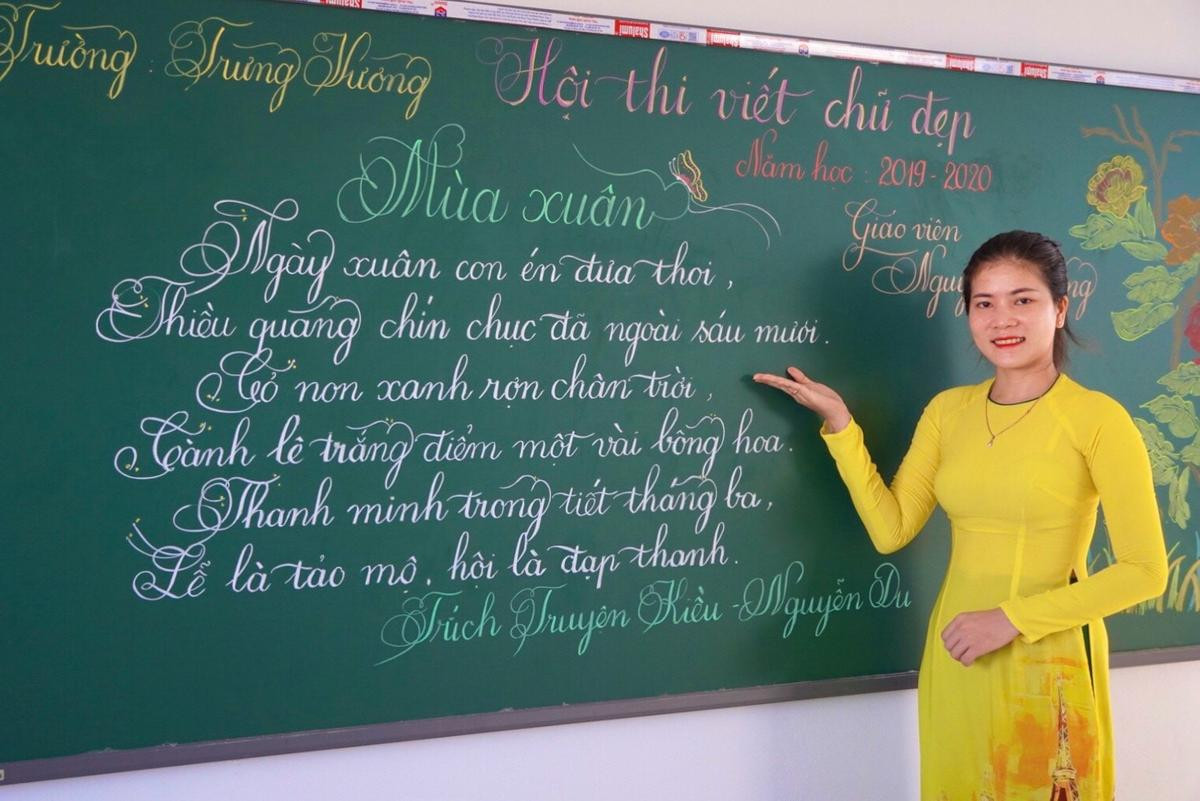 Trường : Trưng Vương
Hội thi viết chữ đẹp
Năm học : 2019 - 2020
Giáo viên
Mùa xuân
Ngày xuân con én đưa thoi,
Thiều quang chín chục đã ngoài sáu mươi.
Cỏ non xanh rợn chân trời,
Cành lê trắng điểm một vài bông hoa.
Thanh minh trong tiết tháng ba,
Lễ là tảo mộ, hội là đạp thanh.
Trích Truyện Kiều - Nguyễn Du
Shalumi
Shalumi
Shalumi
Shalumi
Shalumi